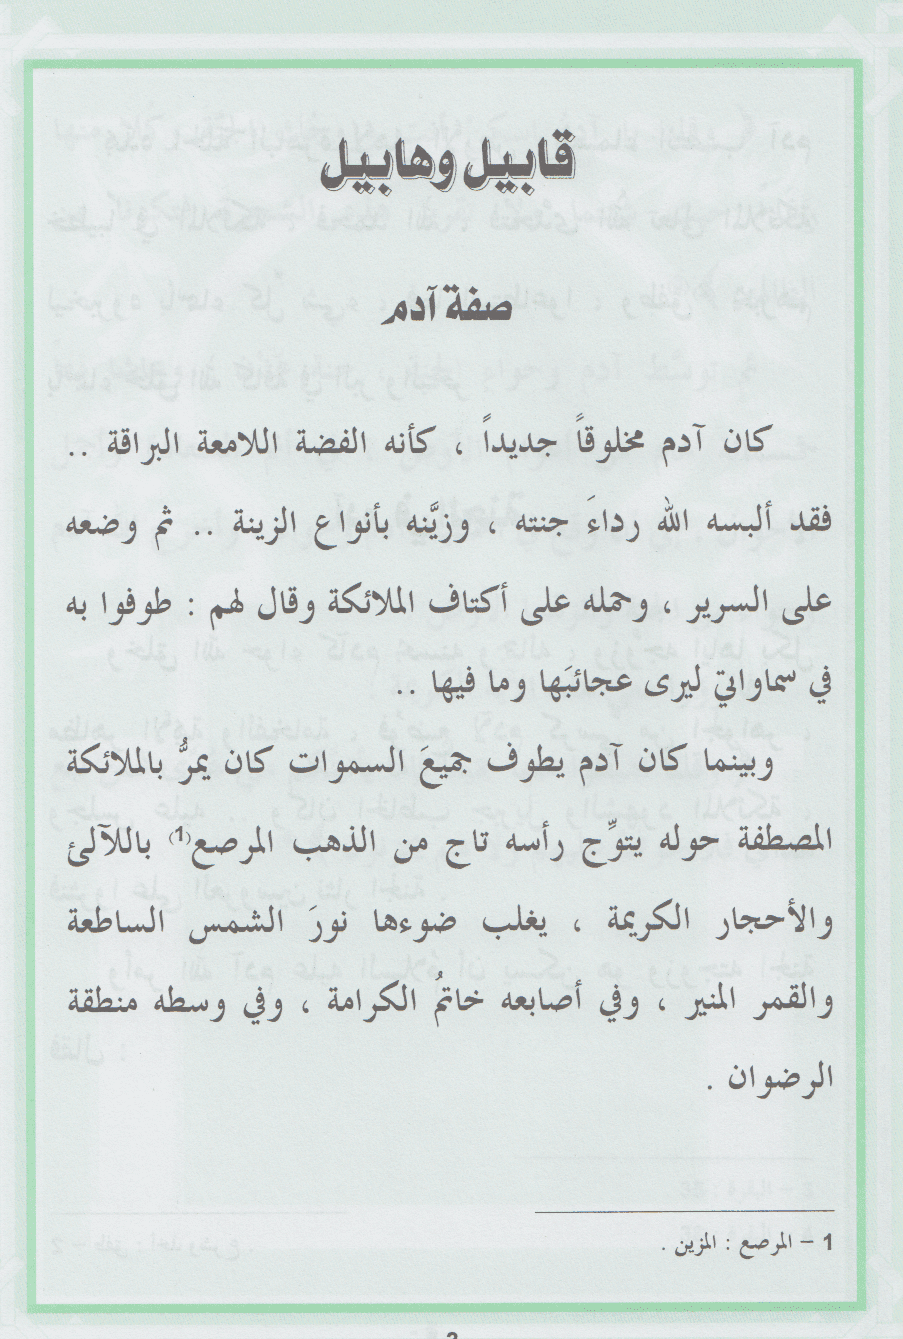 قابيل وهابيل
صفة آدم
كان آدم مخلوقاً جديداً ، كأنه الفضة اللامعة البراقة ..
فقد ألبسه الله رداءَ جنته ، وزيَّنه بأنواع الزينة .. ثم وضعه
على السرير ، وحمله على أكتاف الملائكة وقال لهم : طوفوا به
في سماواتي ليرى عجائبَها وما فيها ..
وبينما كان آدم يطوف جميعَ السموات كان يمرُّ بالملائكة
المصطفة حوله يتوِّج رأسه تاج من الذهب المرصع(1) باللآلئ
والأحجار الكريمة ، يغلب ضوءها نورَ الشمس الساطعة
والقمر المنير ، وفي أصابعه خاتمُ الكرامة ، وفي وسطه منطقة
الرضوان .
1 – المرصع : المزين .